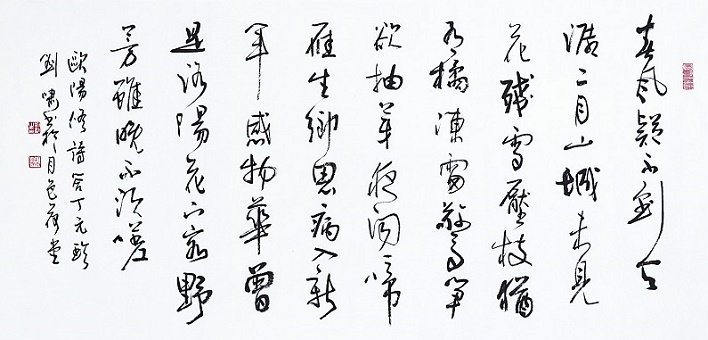 春風疑不到天
涯二月山城未見
花殘雪壓枝猶
有橘凍雷驚筍
欲抽芽夜聞啼
雁生鄉思病入新
年感物華曾
是洛陽花下客野
芳雖晚不須嗟
歐陽修詩答丁元珍
劉嘯書於月色荷堂